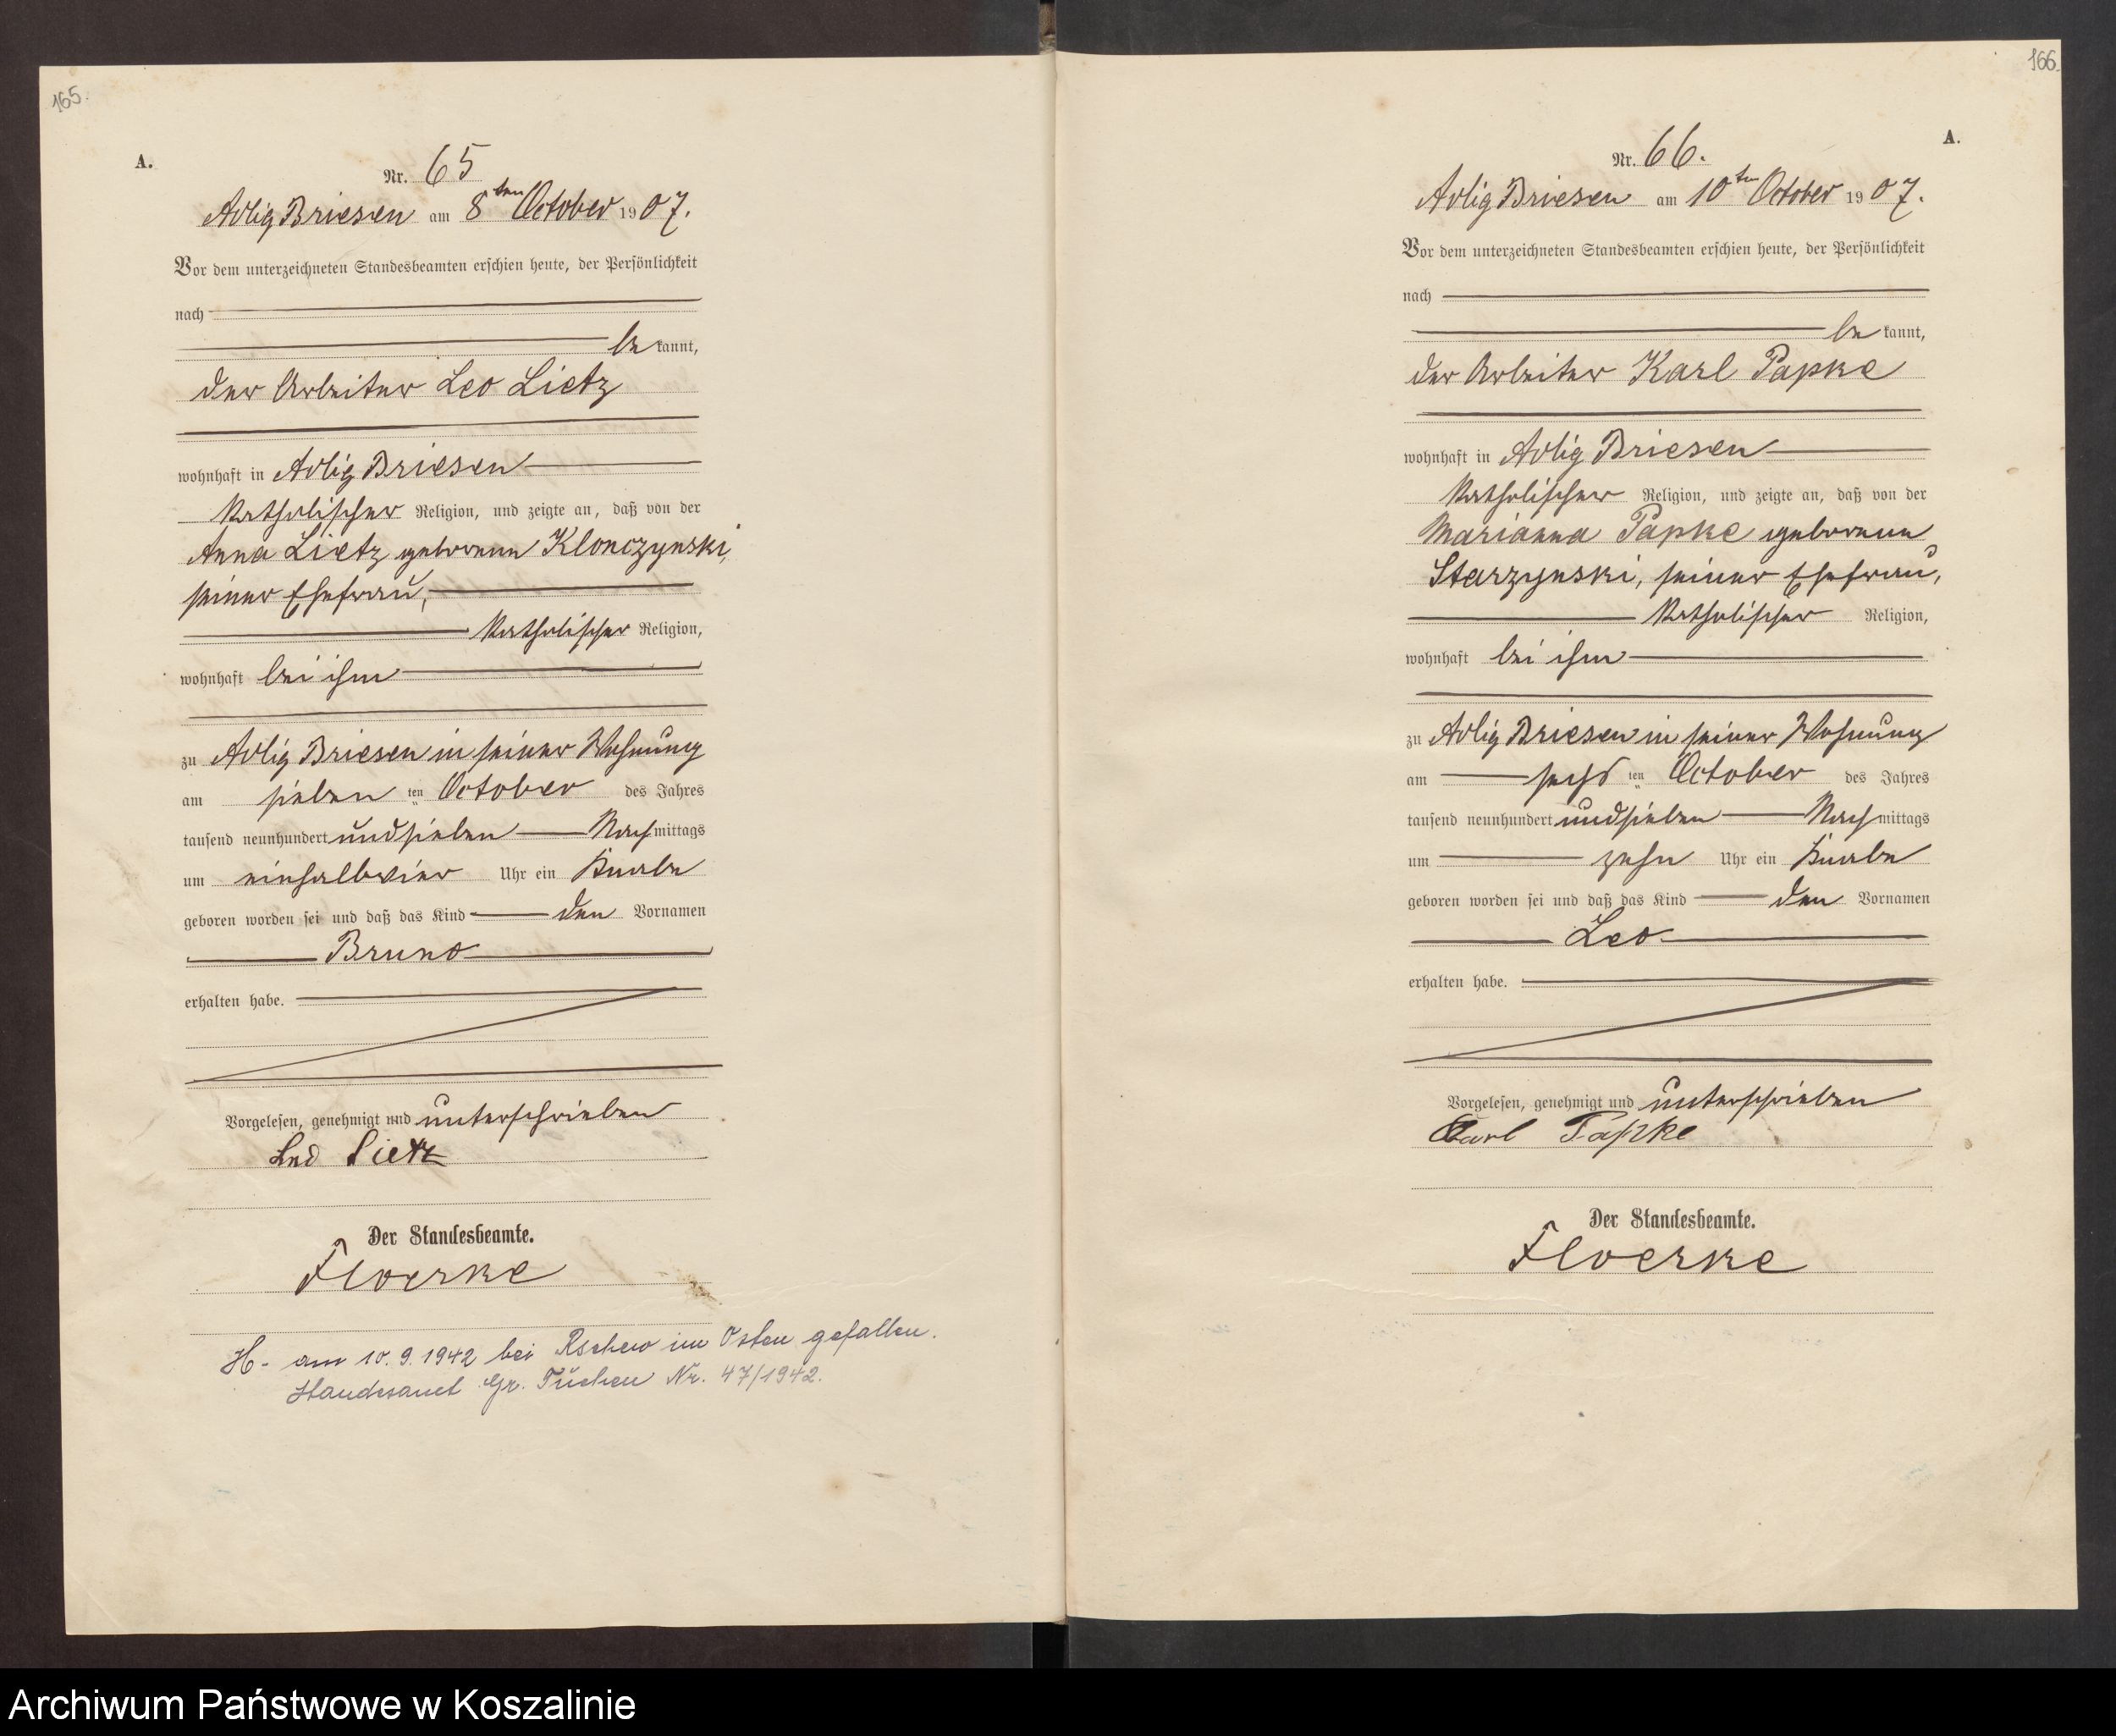 165.
A.
Nr. 65
Adlig Briesen am 8ten October 1907.
Vor dem unterzeichneten Standesbeamten erschien heute, der Persönlichkeit
nach
be kannt,
der Arbeiter Leo Lietz
wohnhaft in Adlig Briesen
katholischer Religion, und zeigte an, daß von der
Anna Lietz geborenen Klonczynski,
seiner Ehefrau,
katholischer Religion,
wohnhaft bei ihm
zu Adlig Briesen in seiner Wohnung
am sieben ten October des Jahres
tausend neunhundert und sieben Nachmittags
um einhalbvier Uhr ein Knabe
geboren worden sei und daß das Kind den Vornamen
Bruno
erhalten habe.
Vorgelesen, genehmigt und unterschrieben
Leo Lietz
Der Standesbeamte.
Floerke
H - am 10. 9. 1942 bei Rschew im Osten gefallen.
Standesamt Gr. Tuchen Nr. 47/1942.
166.
A.
Nr. 66.
Adlig Briesen am 10ten October 1907.
Vor dem unterzeichneten Standesbeamten erschien heute, der Persönlichkeit
nach
be kannt,
der Arbeiter Karl Papke
wohnhaft in Adlig Briesen
katholischer Religion, und zeigte an, daß von der
Marianna Papke geborenen
Starzynski, seiner Ehefrau,
katholischer Religion,
wohnhaft bei ihm
zu Adlig Briesen in seiner Wohnung
am sechs ten October des Jahres
tausend neunhundert und sieben Nachmittags
um zehn Uhr ein Knabe
geboren worden sei und daß das Kind den Vornamen
Leo
erhalten habe.
Vorgelesen, genehmigt und unterschrieben
Carl Papke
Der Standesbeamte.
Floerke
Archiwum Państwowe w Koszalinie